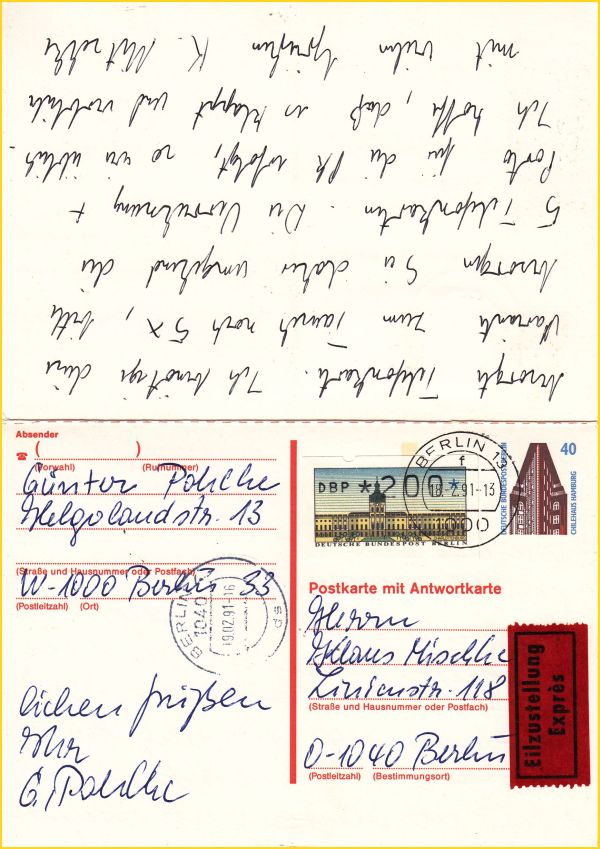 besorgte Telefonkarte. Ich benötige diese
Variante zum Tausch noch 5 x, bitte
besorgen Sie daher umgehend die
5 Telefonkarten. Die Verrechnung +
Porto für die PK erfolgt, so wie üblich
Ich hoffe, daß es klappt und verbleibe
mit vielen Grüßen K. Mischke
Absender
( )
(Vorwahl) (Rufnummer)
Günter Pohlke
Helgolandstr. 13
(Straße und Hausnummer oder Postfach)
W-1000 Berlin 33
(Postleitzahl) (Ort)
BERLIN
1040
19.02.91-16
sp
lichen Grüßen
Ihr
G. Pohlke
DBP *200*
DEUTSCHE BUNDESPOST BERLIN
BERLIN 1
f
18.2.91-13
1000
DEUTSCHE BUNDESPOST BERLIN
40
CHILEHAUS HAMBURG
Postkarte mit Antwortkarte
Herrn
Klaus Mischke
Linienstr. 118
(Straße und Hausnummer oder Postfach)
O-1040 Berlin
(Postleitzahl) (Bestimmungsort)
Eilzustellung
Exprès